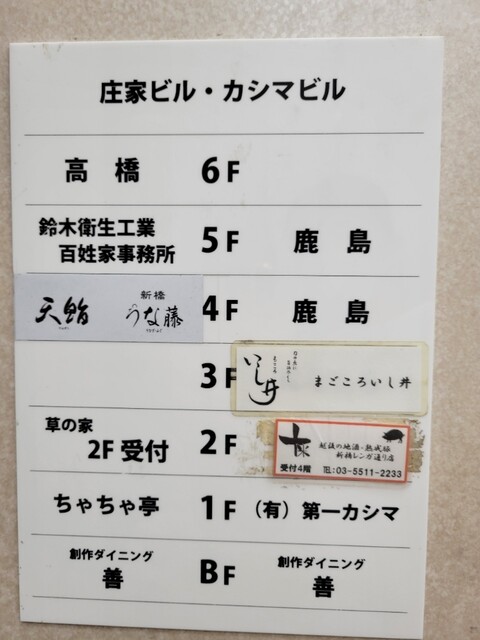 庄家ビル・カシマビル
高橋 6F
鈴木衛生工業
百姓家事務所 5F 鹿島
天鮨 新橋 うな藤 4F 鹿島
3F いし井 まごころいし井
草の家
2F 受付 2F
越後の地酒・熟成豚
新橋レンガ通り店
受付4階 TEL:03-5511-2233
ちゃちゃ亭 1F (有)第一カシマ
創作ダイニング 善 BF 創作ダイニング 善